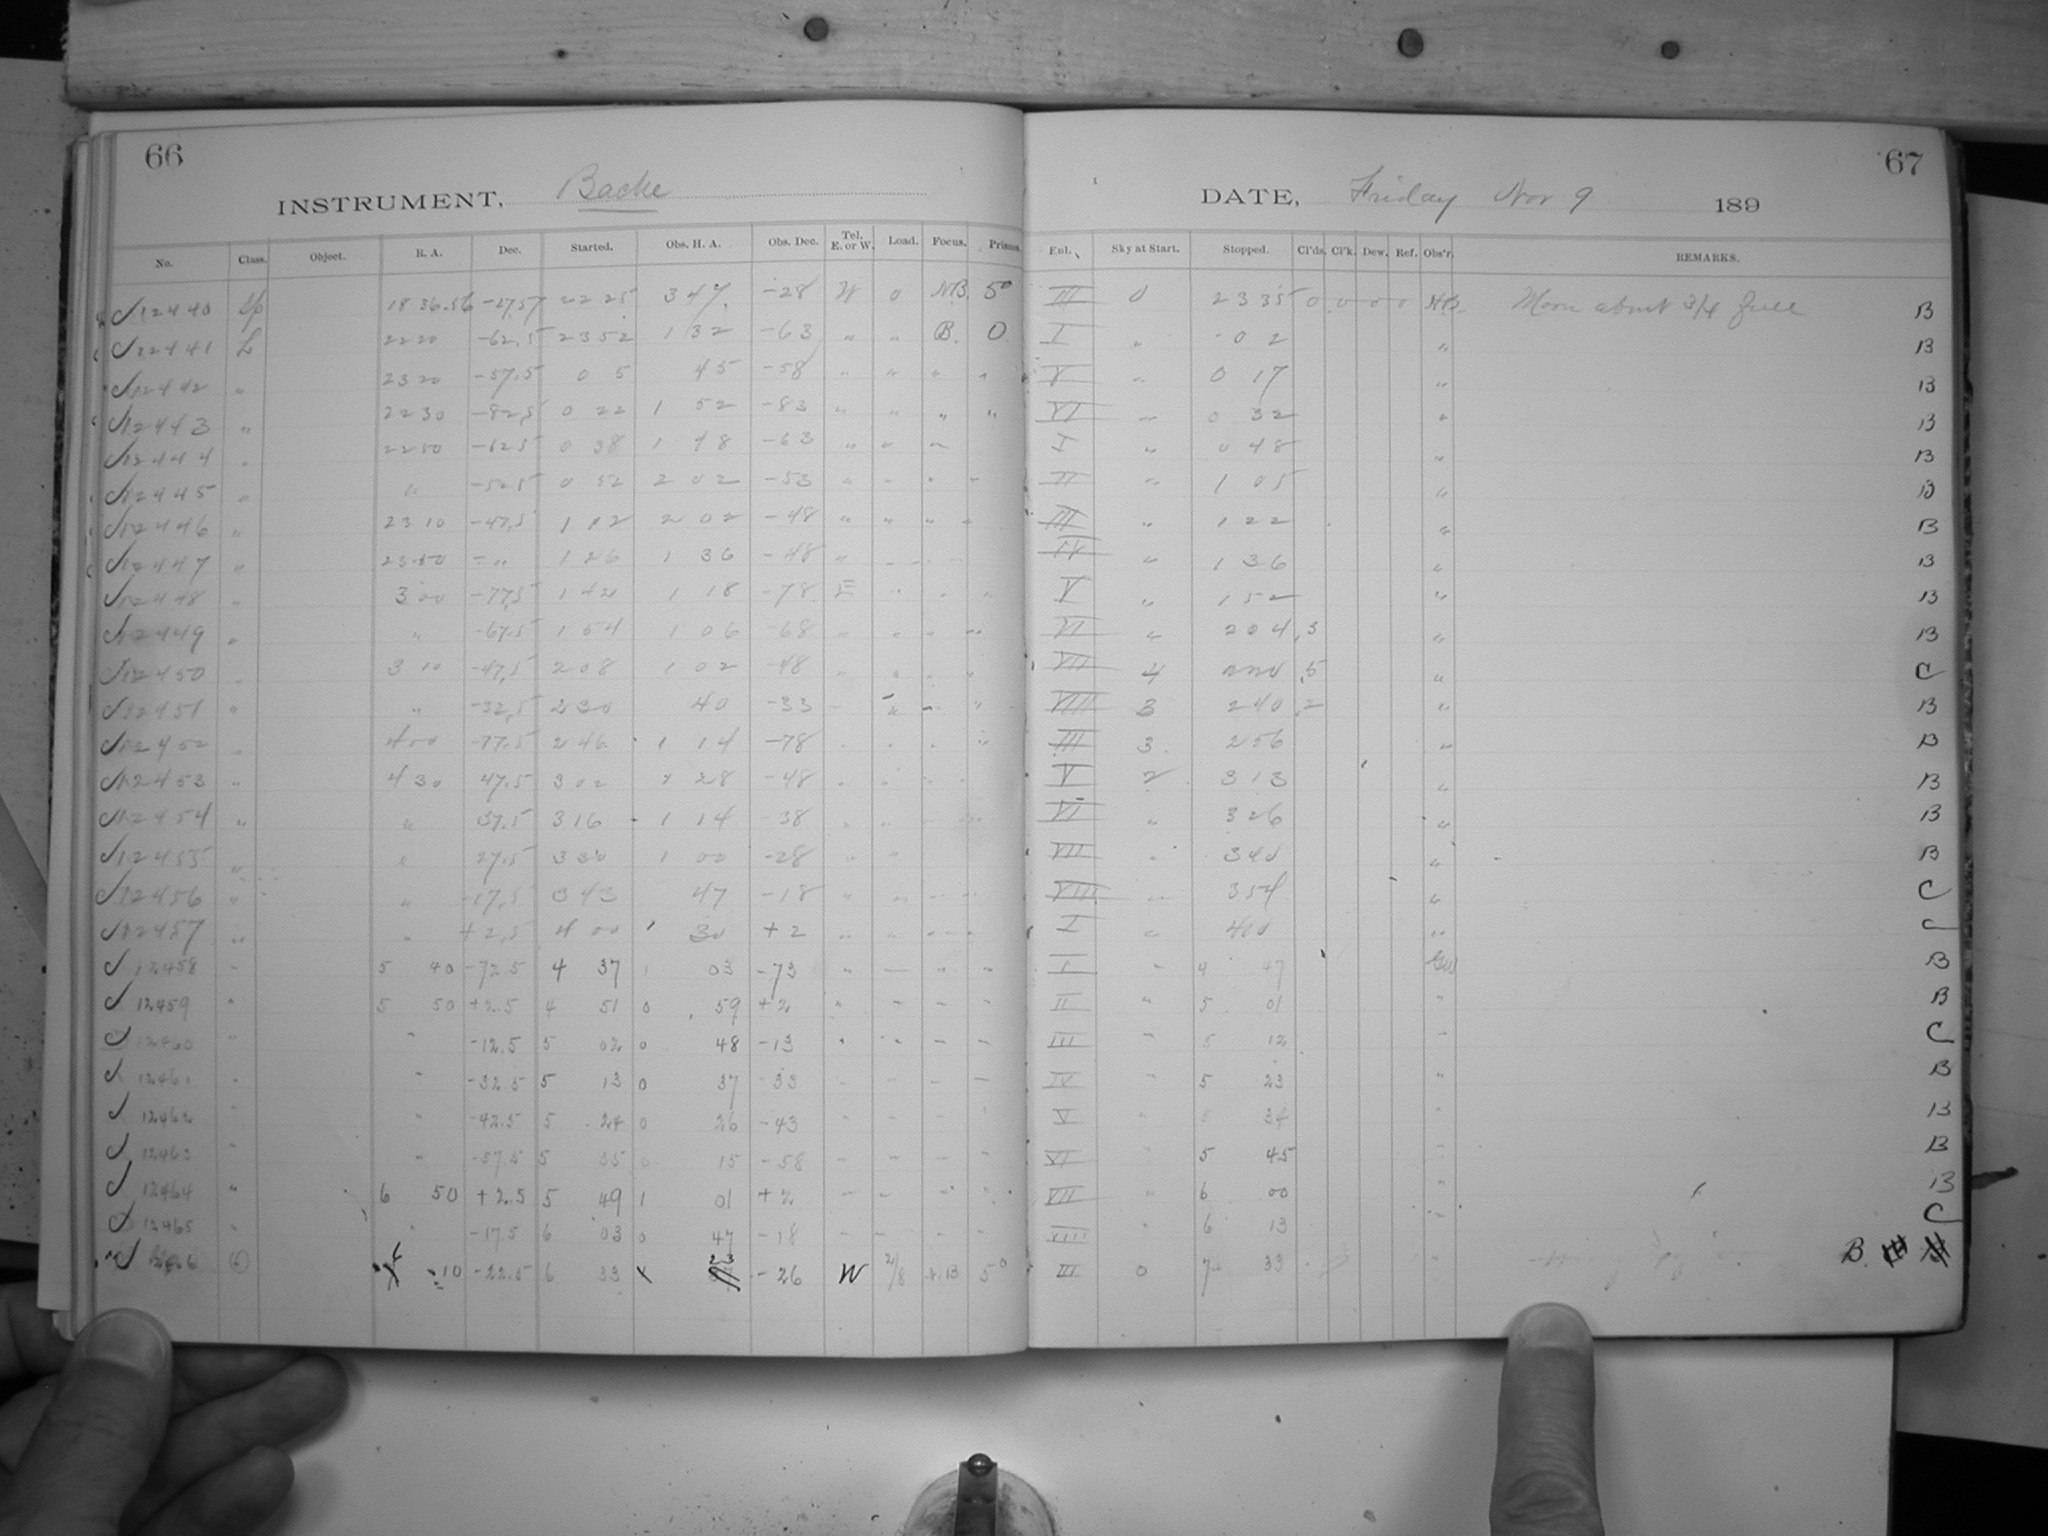 66
INSTRUMENT, Bache
No. Class. Object. R. A. Dec. Started. Obs. H. A. Obs. Dec. Tel. E. or W. Load. Focus. Prisms.
12440 Sp 18 36.56 -27,57 22 25 3 47 -28 W 0 NB. 5°
12441 L 22 20 -62,5 23 52 1 32 -63 " " B. 0
12442 " 23 20 -57.5 0 5 45 -58 " " " "
12443 " 22 30 -82,5 0 22 1 52 -83 " " " "
12444 " 22 50 -62 5 0 38 1 48 -63 " " "
12445 " " -52 5 0 52 2 02 -53 " " " "
12446 " 23 10 -47,5 1 12 2 02 -48 " " " "
12447 " 23 50 - " 1 26 1 36 -48 "
12448 " 3 00 -77,5 1 42 1 18 -78 E " " "
12449 " " -67.5 1 54 1 06 -68 " " " "
12450 " 3 10 -47,5 2 08 1 02 -48 " " " "
12451 " " -32,5 2 30 40 -33 " " " "
12452 " 4 00 -77.5 2 46 1 14 -78 " " " "
12453 " 4 30 47.5 3 02 1 28 -48 " "
12454 " " 37.5 3 16 1 14 -38 " "
12455 " " 27.5 3 30 1 00 -28 " "
12456 " " -17,5 3 43 47 -18 "
12457 " " +2,5 4 00 30 +2 " "
12458 " 5 40 -72.5 4 37 1 03 -73 " " " "
12459 " 5 50 +2.5 4 51 0 59 +2 " " " "
12460 " " -12.5 5 02 0 48 -13 " " " "
12461 " " -32.5 5 13 0 37 -33 " " " "
12462 " " -42.5 5 24 0 26 -43 " " " "
12463 " " -57.5 5 35 0 15 -58 " " " "
12464 " 6 50 +2.5 5 49 1 01 +2 " " " "
12465 " " -17.5 6 03 0 47 -18 " " " "
12466 10 -22.5 6 33 23 -26 W 2/8 N.B 5°
67
DATE, Friday Nov 9 189
Enl. Sky at Start. Stopped. Cl'ds. Cl'k. Dew. Ref. Obs'r. REMARKS.
III 0 23 35 0 0 0 0 NB. Moon about 3/4 full B
I " 0 2 " B
V " 0 17 " B
VI " 0 32 " B
I " 0 48 " B
II " 1 05 " B
III " 1 22 " B
IV " 1 36 " B
V " 1 52 " B
VI " 2 04 ,3 " B
VII 4 ,5 " C
VIII 3 2 40 ,2 " B
III 3 2 56 " B
V 2 3 13 " B
VI " 3 26 " B
VII " 3 40 " B
VIII " 3 54 " C
I " 4 10 " C
I " 4 47 B
II " 5 01 " B
III " 5 12 " C
IV " 5 23 " B
V " 5 34 " B
VI " 5 45 " B
VII " 6 00 " B
VIII " 6 13 " C
III 0 7 33 " B.